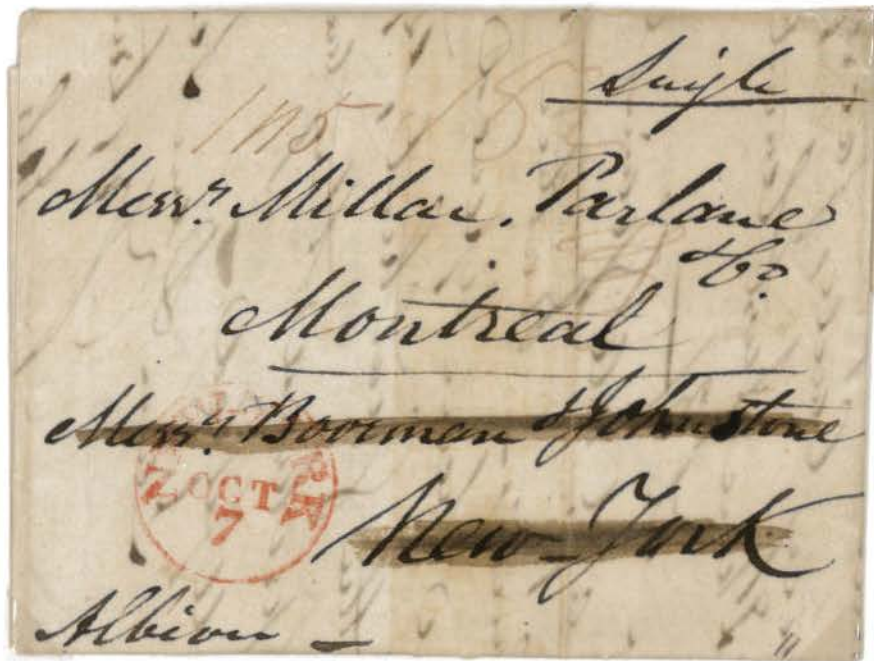 Single
Messrs. Millar, Parlane
& Co.
Montreal
Messrs. Boorman & Johnstone
NEW YORK
OCT
7
New-York
Albion